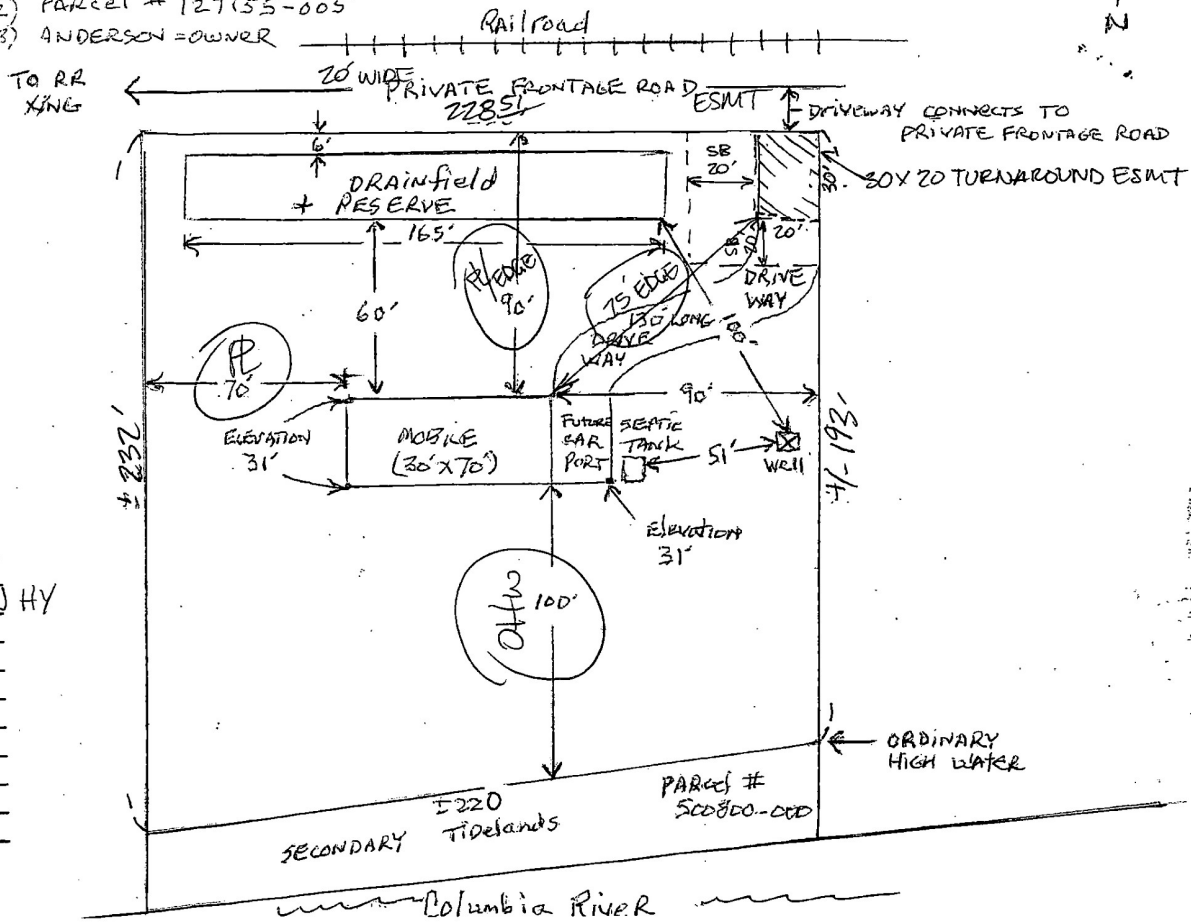 2) PARCEL # 127155-005
3) ANDERSON = OWNER
Railroad
N
TO RR
XING
20' WIDE
PRIVATE FRONTAGE ROAD
ESMT
228.51
DRIVEWAY CONNECTS TO
PRIVATE FRONTAGE ROAD
6'
SB
20'
30'
30X20 TURNAROUND ESMT
DRAINfield
+ RESERVE
165'
20'
SB 20'
DRIVE
WAY
PL/EDGE
90'
75' EDGE
130' LONG
DRIVE
WAY
100'
60'
PL
70'
90'
ELEVATION
31'
MOBILE
(30'x70')
FUTURE
CAR
PORT
SEPTIC
TANK
51'
Well
± 232'
+/- 193'
Elevation
31'
HY
100'
ORDINARY
HIGH WATER
±220
PARCEL #
500800-000
SECONDARY TIDelands
Columbia River